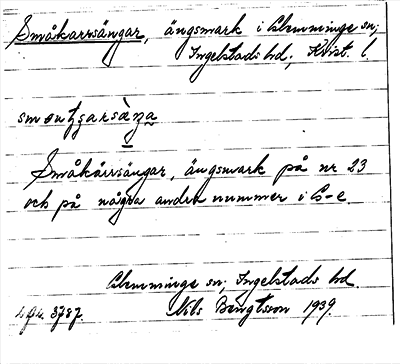 Småkärrsängar, ängsmark i Glemminge sn;
Ingelstads hd, Krist. l.
Småkärrsängar, ängsmark på nr 23
och på några andra nummer i G-e.
Glemminge sn; Ingelstads hd
Nils Bengtsson 1939.